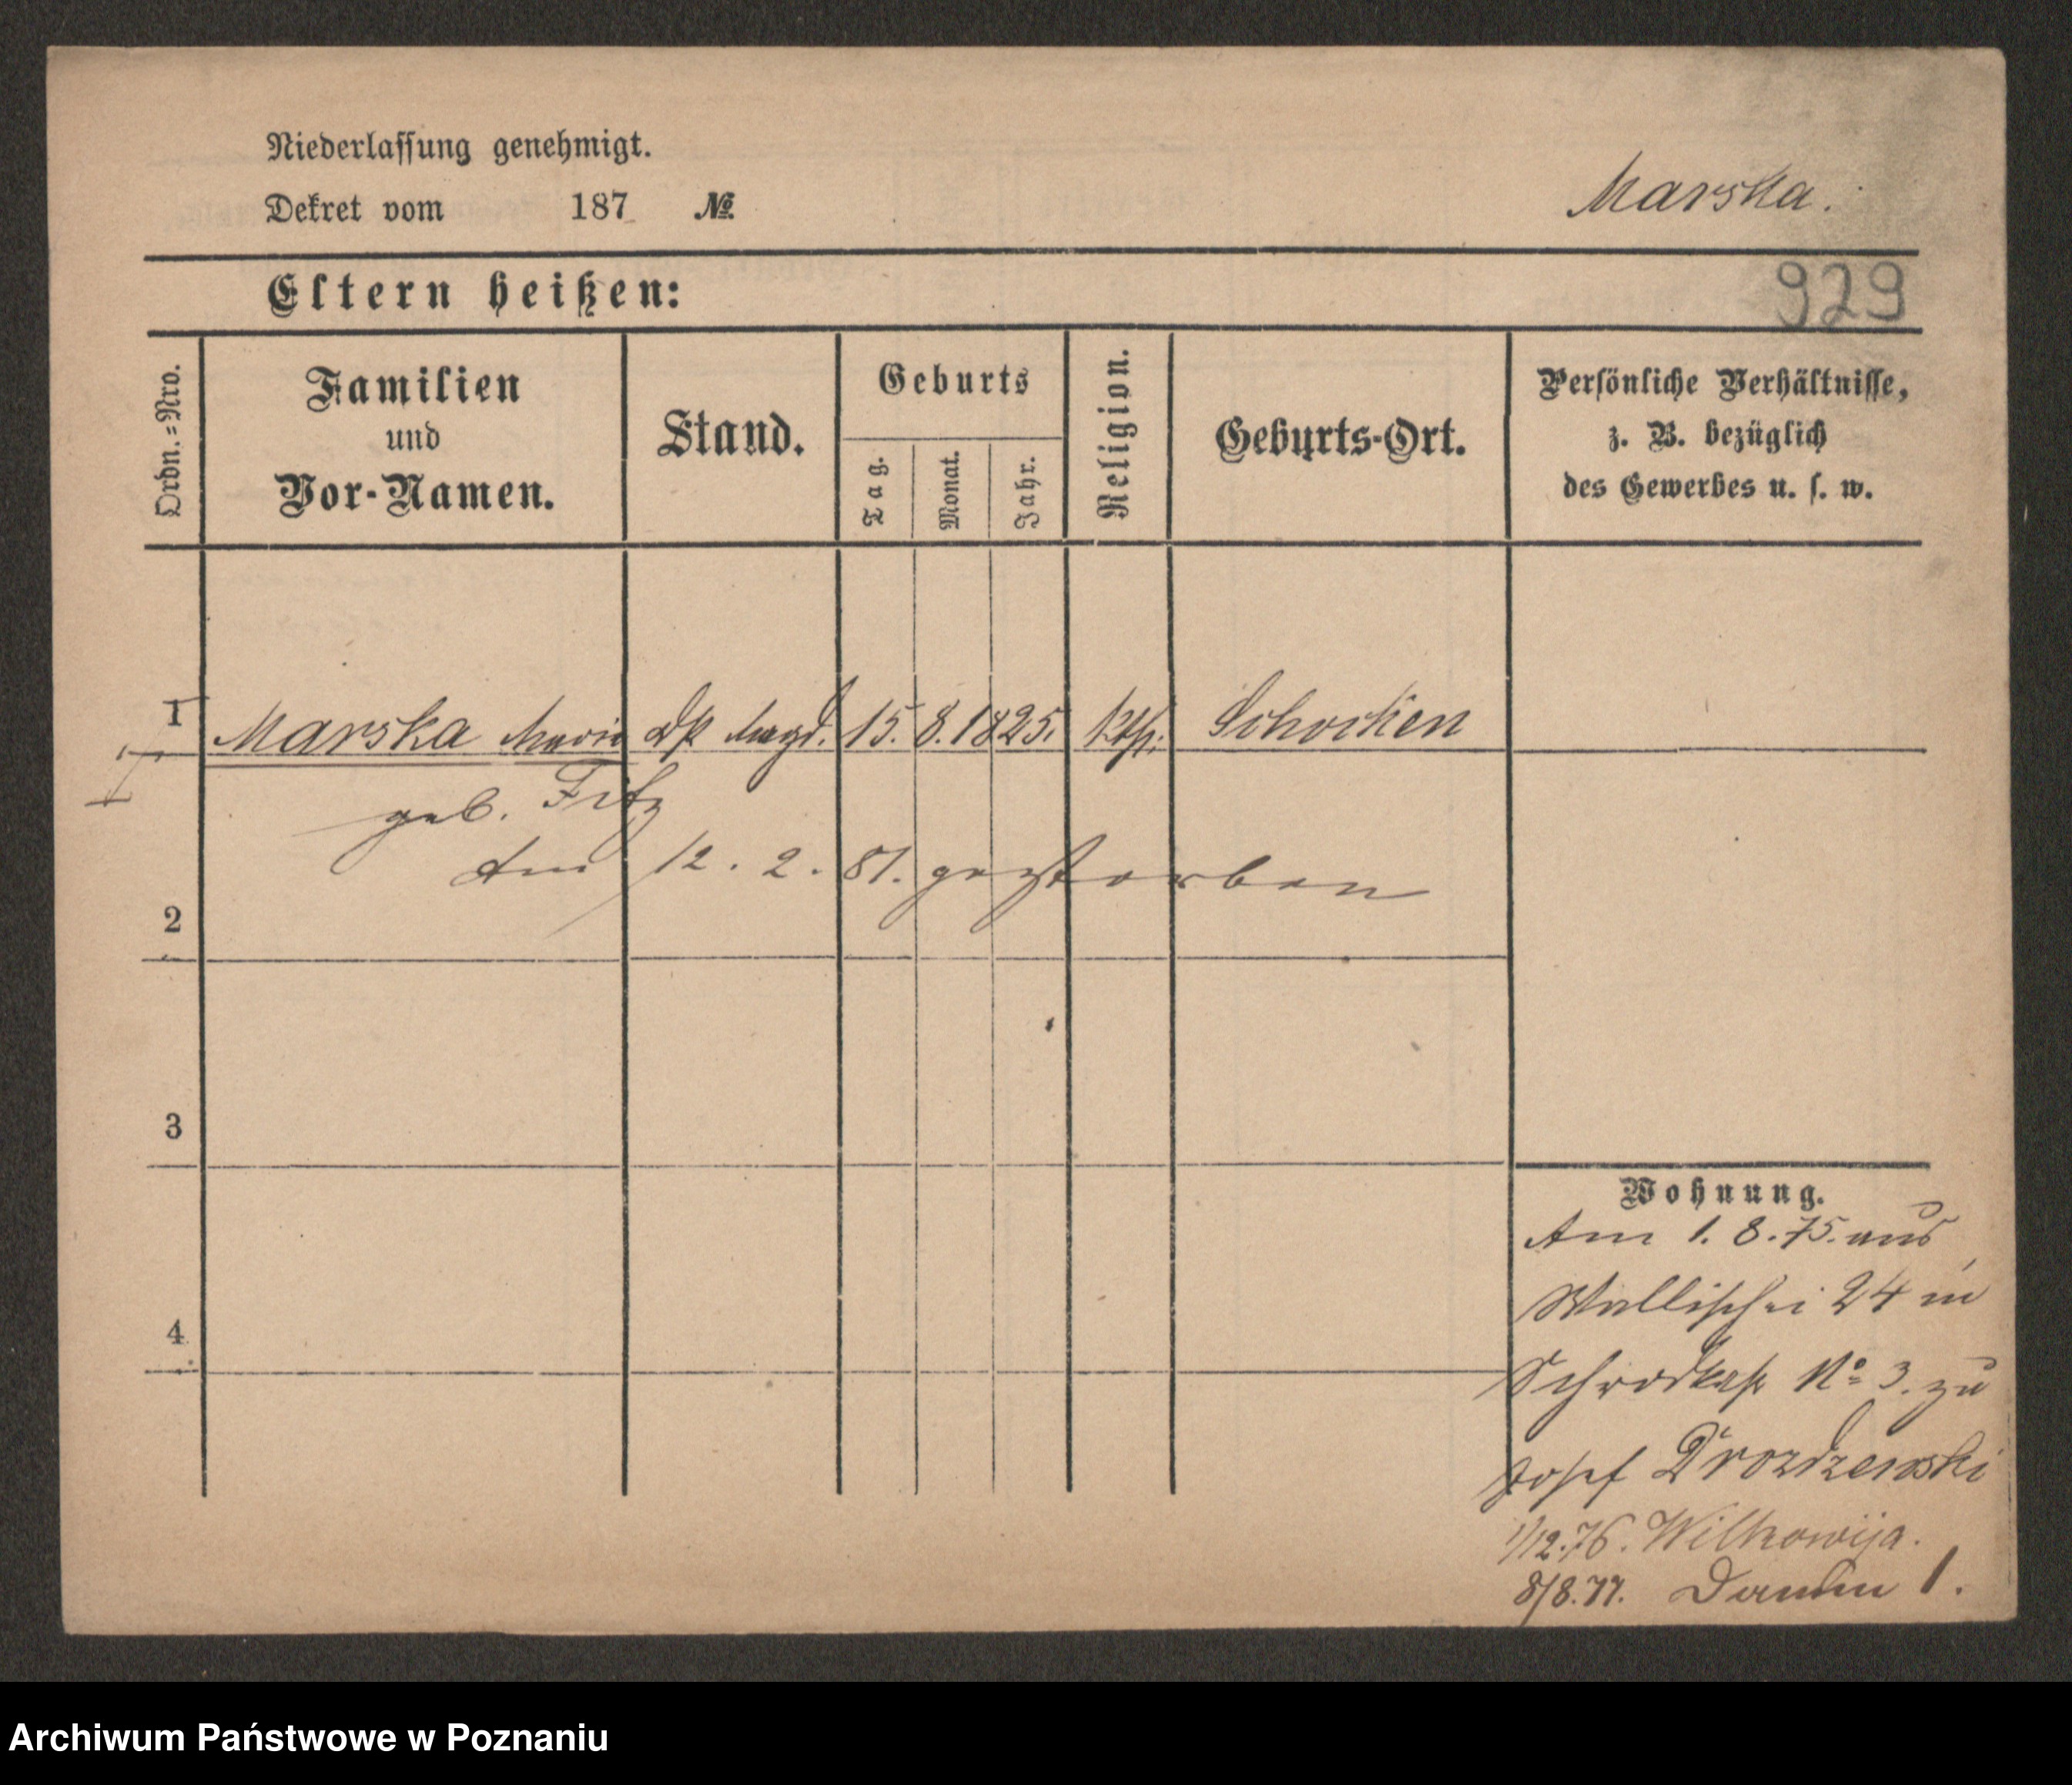 Niederlassung genehmigt.
Dekret vom 187 №
Marska.
Eltern heißen:
929
Ordn.=Nro.
Familien
und
Vor-Namen.
Stand.
Geburts
Tag.
Monat.
Jahr.
Religion.
Geburts-Ort.
Persönliche Verhältnisse,
z. B. bezüglich
des Gewerbes u. s. w.
1 Marska Maria Magd. 15. 8. 1825. Kth. Schocken
geb.
Am 12. 2. 81. gestorben
2
3
4
Wohnung.
Am 1. 8. 75. aus
Wallischei 24 in
No 3. zu
Josef Drozdzewski
1/12.76. Wilkowija.
8/8.77. Damm 1.
Archiwum Państwowe w Poznaniu